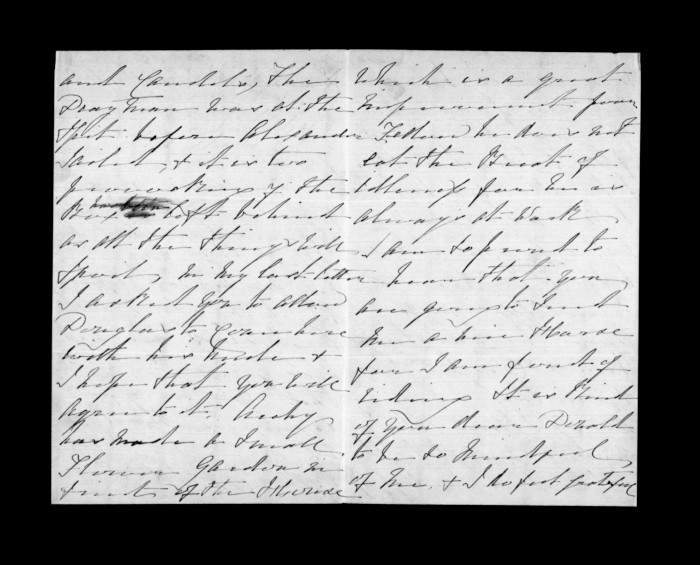 and Candels, The
Drayman was at the
Spit before Alexander
Sailed, & it is too
provoking if the
Box left behind
as all the things will
Spoil, in my last letter
I asked you to allow
Douglas to Come here
with his Uncle &
I hope that you will
agree to it. Archy
has made a Small
Flower Garden in
front of the House
Which is a great
Improvement poor
Fellow he does not
eat the Bread of
Idleness for he is
always at Work,
I am so proud to
hear that you
are going to Send
me a nice Horse
for I am fond of
riding It is Kind
of you dear Donald
to be so Mindful
of me, & I do feel grateful